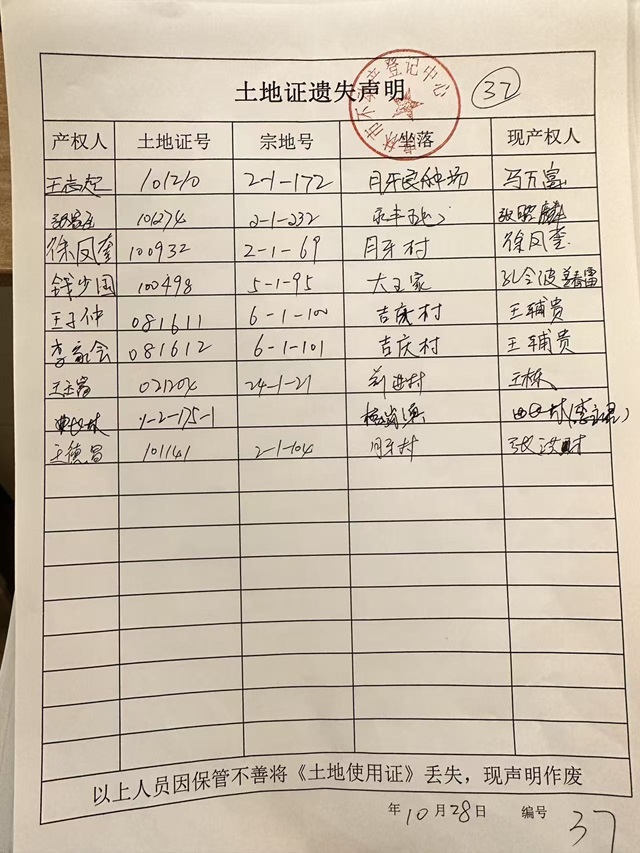 土地证遗失声明
不动产登记中心
37
产权人 土地证号 宗地号 坐落 现产权人
101210 2-1-172 月牙良种场 马万富
101274 2-1-232
徐凤奎 100932 2-1-69 月牙村 徐凤奎
钱少国 100498 5-1-95 大王家 孔令波
王子仲 081611 6-1-100 吉庆村 王辅贵
李家会 081612 6-1-101 吉庆村 王辅贵
24-1-21 王栋
1-2-175-1
王德昌 101141 2-1-104 月牙村
以上人员因保管不善将《土地使用证》丢失，现声明作废
年10月28日 编号 37